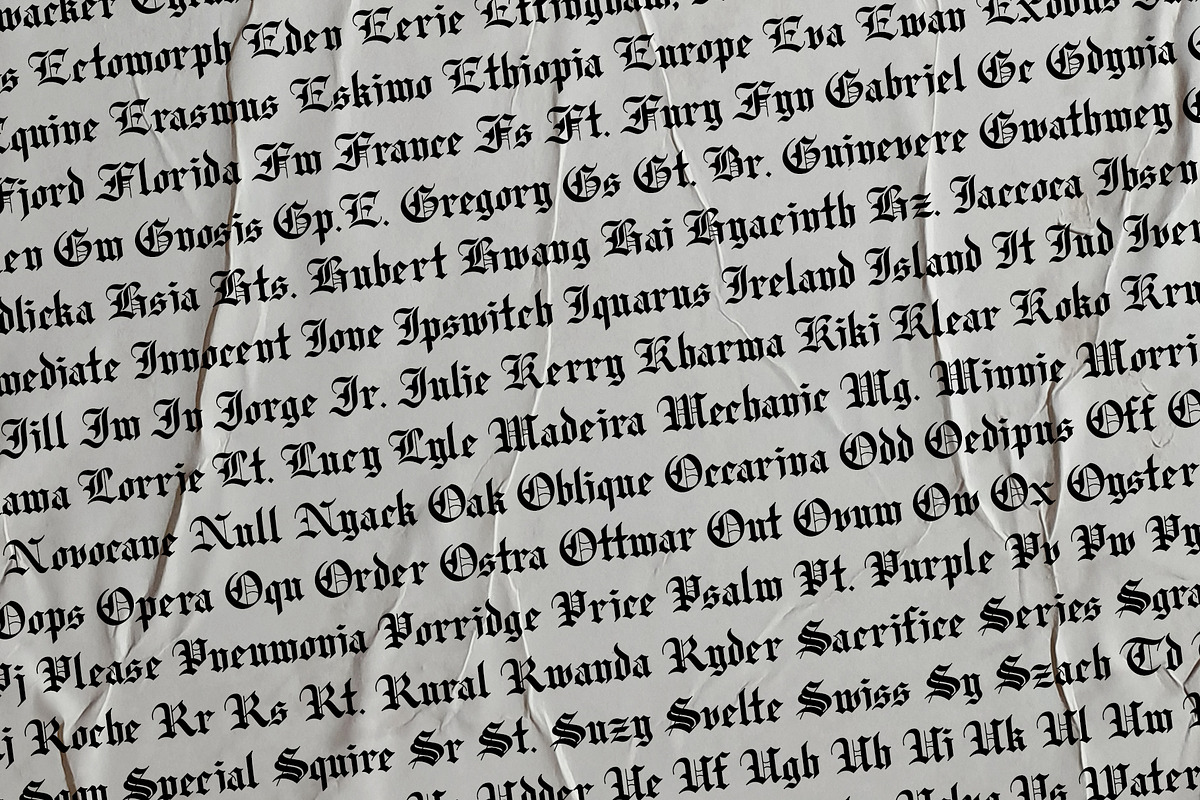 wacker
s Ectomorph Eden Eerie Effingham,
Equine Erasmus Eskimo Ethiopia Europe Eva Ewan Exodus
Fjord Florida Fm France Fs Ft. Fury Fyn Gabriel Gc Gdynia G
en Gm Gnosis Gp.E. Gregory Gs Gt. Br. Guinevere Gwathmey G
dlicka Hsia Hts. Hubert Hwang Hai Hyacinth Hz. Iaccoca Ibsen
mediate Innocent Ione Ipswitch Iquarus Ireland Island It Ind Iver
Jill Jm Jn Jorge Jr. Julie Kerry Kharma Kiki Klear Koko Kru
ama Lorrie Lt. Lucy Lyle Madeira Mechanic Mg. Minnie Morri
Novocane Null Nyack Oak Oblique Occarina Odd Oedipus Off O
Oops Opera Oqu Order Ostra Ottmar Out Ovum Ow Ox Oyster
Pj Please Pneumonia Porridge Price Psalm Pt. Purple Pv Pw Py
j Roche Rr Rs Rt. Rural Rwanda Ryder Sacrifice Series Sgra
Special Squire Sr St. Suzy Svelte Swiss Sy Szach Td
Udder Ue Uf Ugh Uh Ui Uk Ul Um
Vs Water